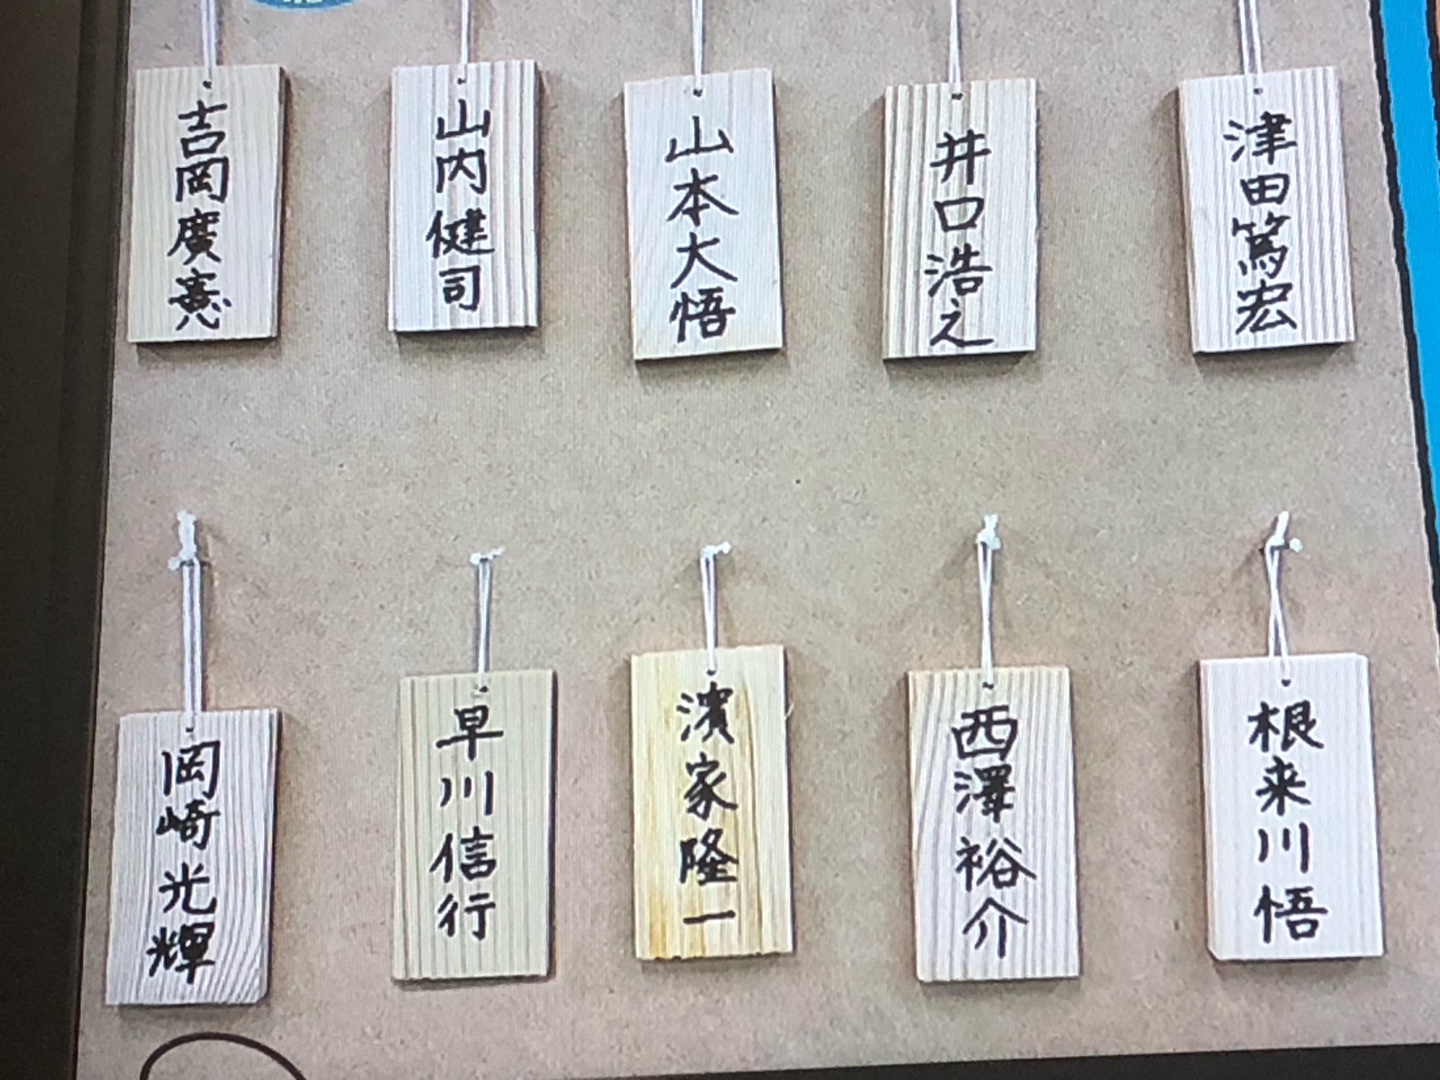 吉岡廣憲
山内健司
山本大悟
井口浩之
津田篤宏
岡崎光輝
早川信行
濱家隆一
西澤裕介
根来川悟